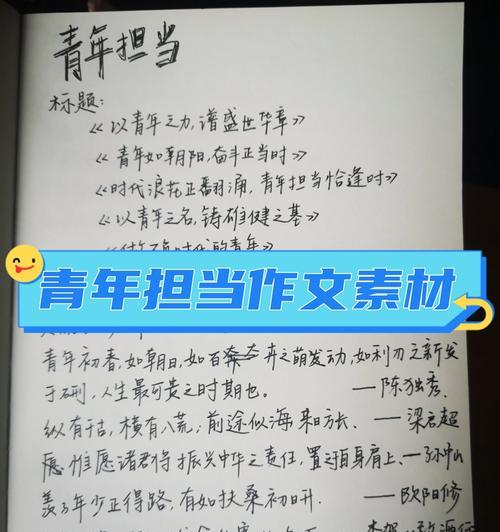 青年担当
标题:
《以青年之力,谱盛世华章》
《青年如朝阳,奋斗正当时》
《时代浪花正翻涌,青年担当恰逢时》
《以青年之名,铸雄健之基》
青年担当作文素材
青年初春,如朝日,如百卉之萌发动,如利刃之新发
于硎,人生最可贵之时期也。——陈独秀
纵有千古,横有八荒;前途似海,来日方长。——梁启超
惟愿诸君将振兴中华之责任,置之于自身肩上。——孙中山
羡子年少正得路,有如扶桑初日升。——欧阳修